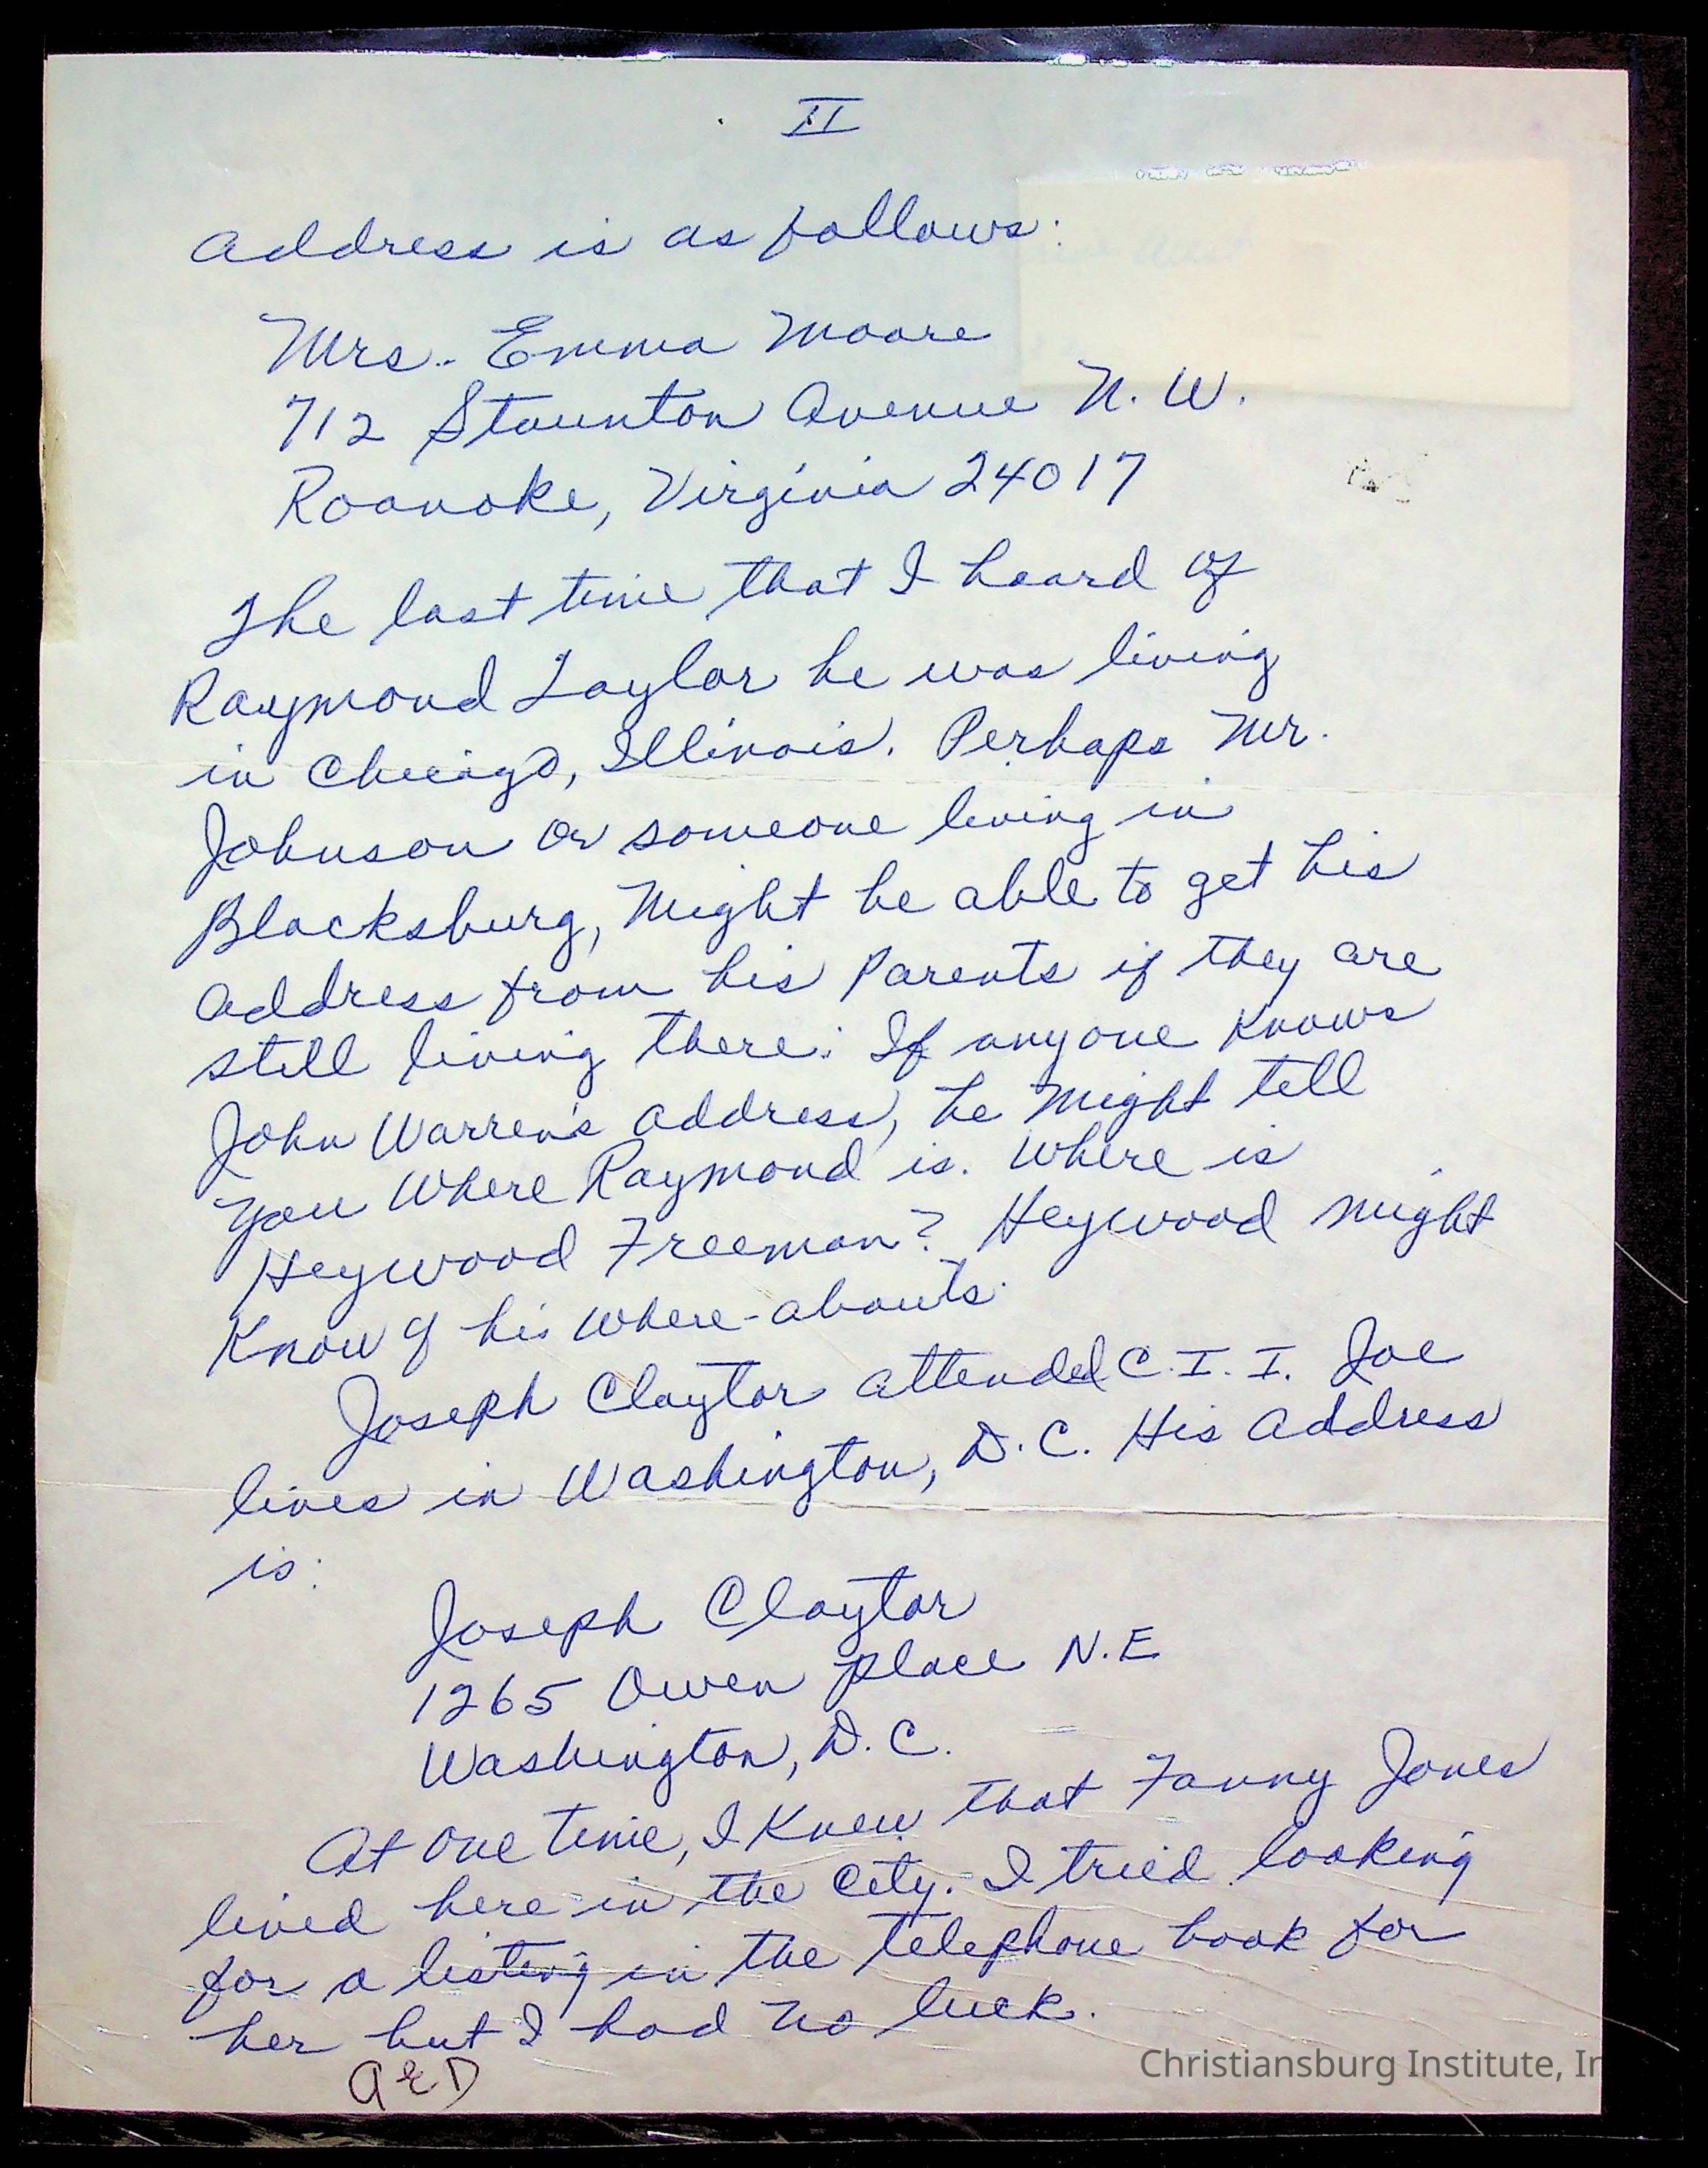 II
address is as follows:
Mrs. Emma Moore
712 Staunton Avenue N. W.
Roanoke, Virginia 24017
The last time that I heard of
Raymond Taylor he was living
in Chicago, Illinois. Perhaps Mr.
Johnson or someone living in
Blacksburg, Might be able to get his
address from his Parents if they are
still living there. If anyone Knows
John Warren's address, he Might tell
you Where Raymond is. Where is
Heywood Freeman? Heywood might
Know of his Where-abouts.
Joseph Claytor attended C. I. I. Joe
lives in Washington, D. C. His address
is:
Joseph Claytor
1265 Owen Place N.E
Washington, D. C.
At one time, I Knew that Fanny Jones
lived here in the City. I tried looking
for a listing in the telephone book for
her but I had no luck.
A&D
Christiansburg Institute, In